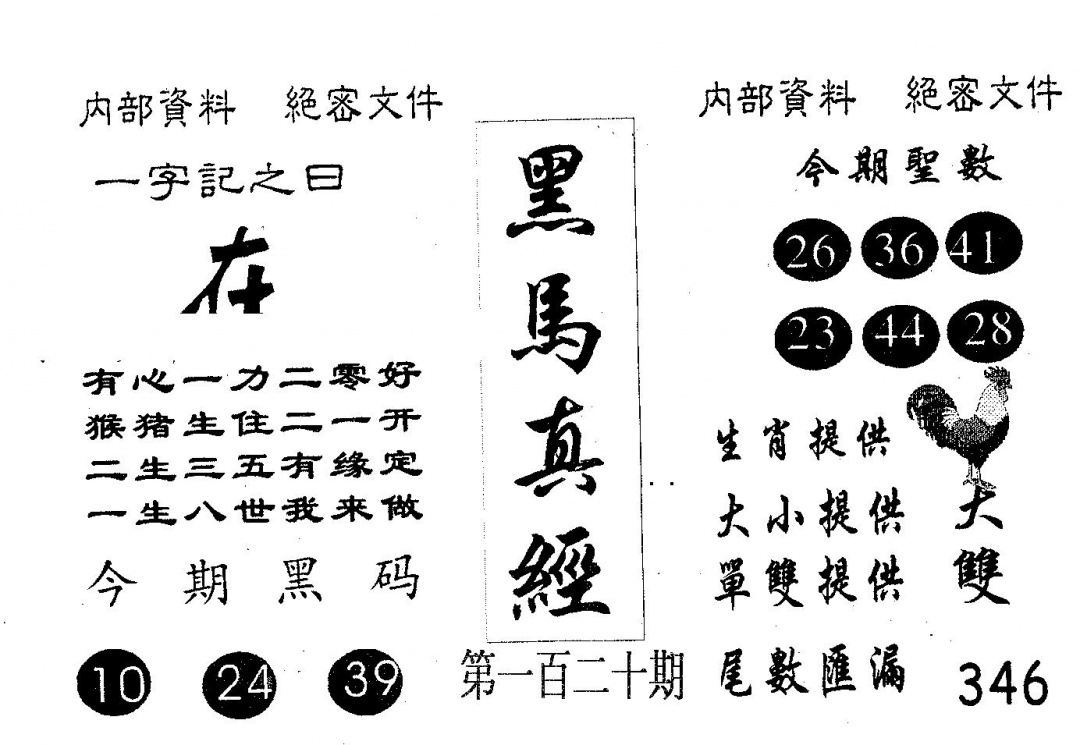 内部資料 絕密文件
一字記之曰
在
有心一力二零好
猴猪生住二一开
二生三五有缘定
一生八世我来做
今期黑码
10 24 39
黑馬真經
第一百二十期
内部資料 絕密文件
今期聖數
26 36 41
23 44 28
生肖提供
大小提供 大
單雙提供 雙
尾數匯漏 346